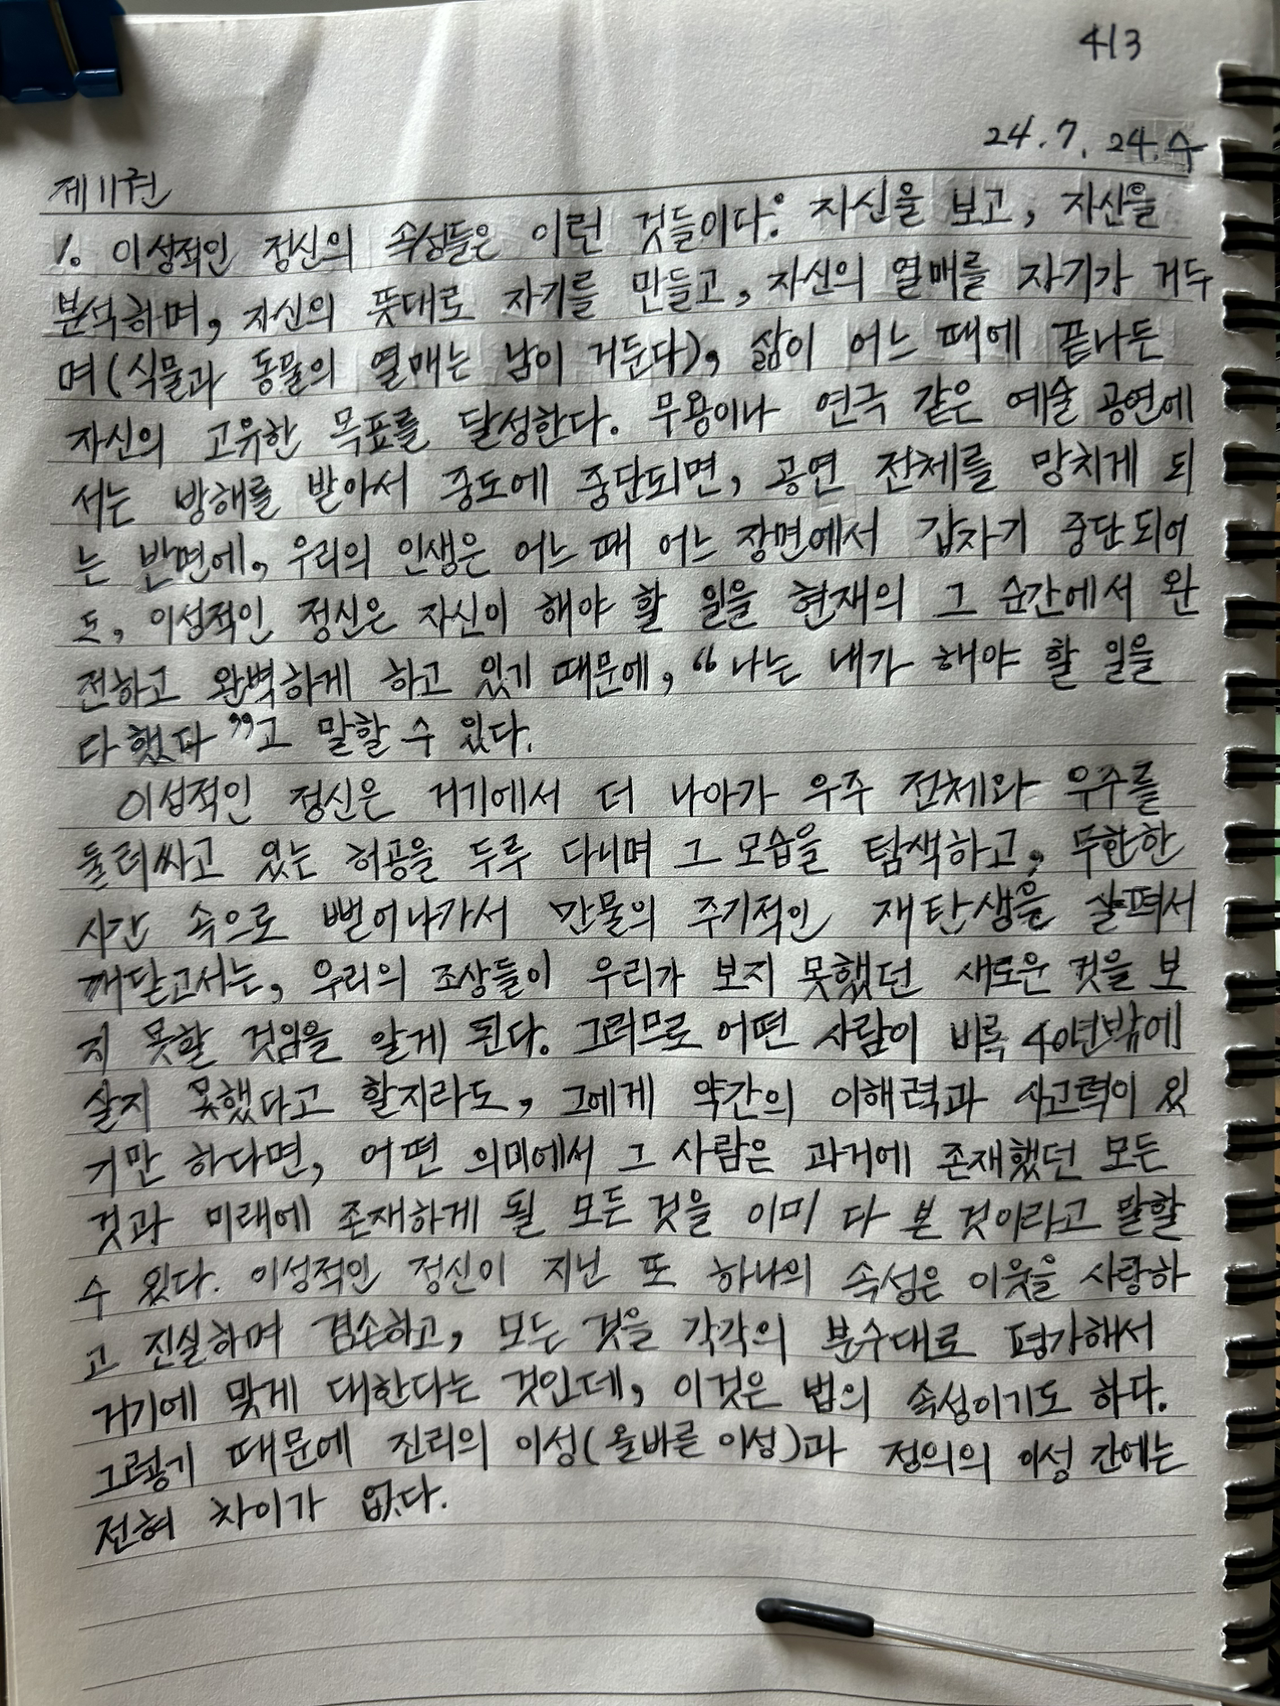 413
24.7. 24.수
제11권
1. 이성적인 정신의 속성들은 이런 것들이다: 자신을 보고, 자신을
분석하며, 자신의 뜻대로 자기를 만들고, 자신의 열매를 자기가 거두
며(식물과 동물의 열매는 남이 거둔다), 삶이 어느 때에 끝나든
자신의 고유한 목표를 달성한다. 무용이나 연극 같은 예술 공연에
서는 방해를 받아서 중도에 중단되면, 공연 전체를 망치게 되
는 반면에, 우리의 인생은 어느 때 어느 장면에서 갑자기 중단되어
도, 이성적인 정신은 자신이 해야 할 일을 현재의 그 순간에서 완
전하고 완벽하게 하고 있기 때문에, “나는 내가 해야 할 일을
다했다”고 말할 수 있다.
이성적인 정신은 거기에서 더 나아가 우주 전체와 우주를
둘러싸고 있는 허공을 두루 다니며 그 모습을 탐색하고, 무한한
시간 속으로 뻗어나가서 만물의 주기적인 재탄생을 살펴서
깨닫고서는, 우리의 조상들이 우리가 보지 못했던 새로운 것을 보
지 못할 것임을 알게 된다. 그러므로 어떤 사람이 비록 40년밖에
살지 못했다고 할지라도, 그에게 약간의 이해력과 사고력이 있
기만 하다면, 어떤 의미에서 그 사람은 과거에 존재했던 모든
것과 미래에 존재하게 될 모든 것을 이미 다 본 것이라고 말할
수 있다. 이성적인 정신이 지닌 또 하나의 속성은 이웃을 사랑하
고 진실하며 겸손하고, 모든 것을 각각의 분수대로 평가해서
거기에 맞게 대한다는 것인데, 이것은 법의 속성이기도 하다.
그렇기 때문에 진리의 이성(올바른 이성)과 정의의 이성 간에는
전혀 차이가 없다.